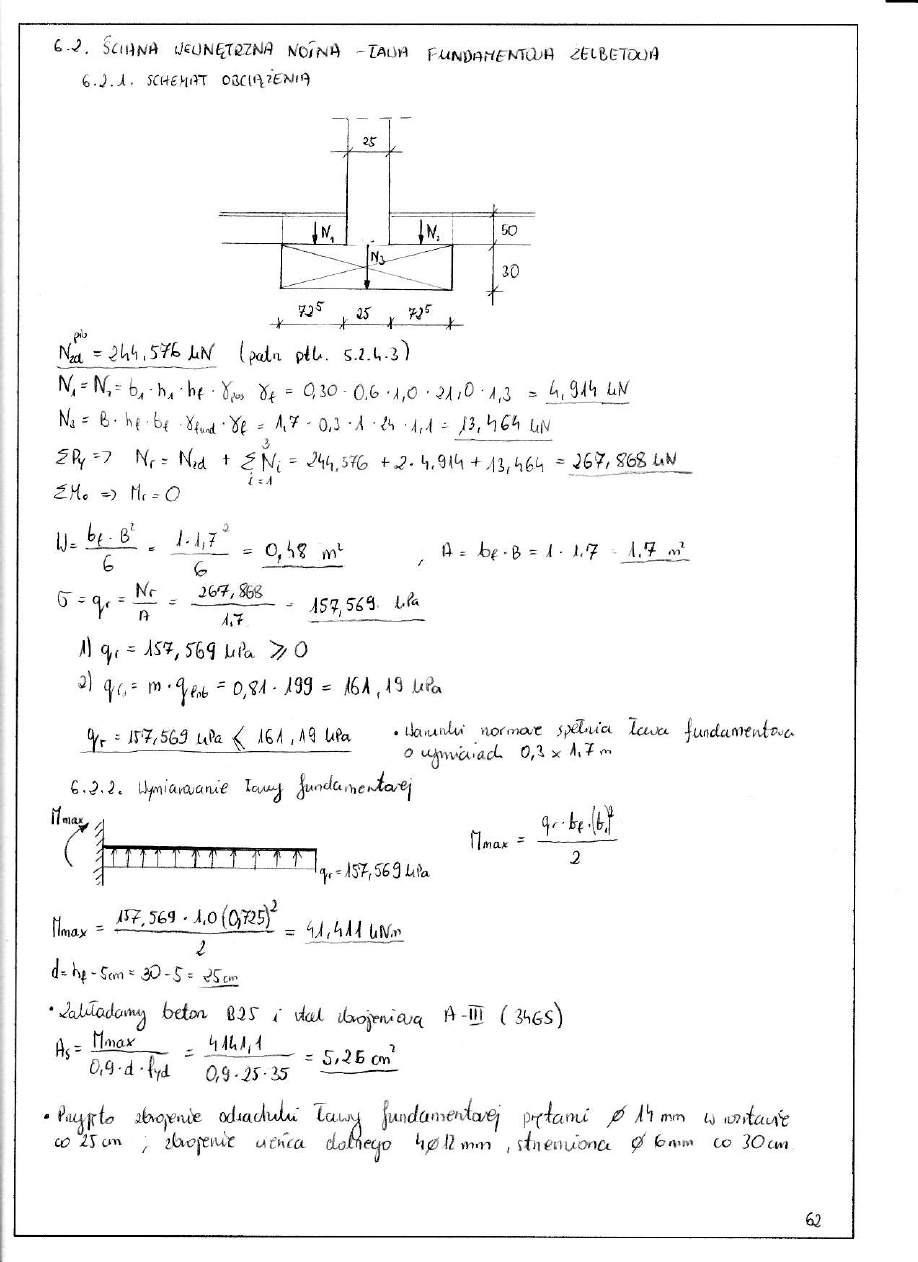 6.2. ŚCIANA WEWNĘTRZNA NOŚNA - ŁAWA FUNDAMENTOWA ŻELBETOWA
6.2.1. SCHEMAT OBCIĄŻENIA
25
N₁ N₂ 50
N₃
30
72⁵ 25 72⁵
N_zd = 244,576 kN (patrz pkt. 5.2.4.3)
N₁ = N₂ = b₁ · h₁ · h_f · γ_pos γ_f = 0,30 · 0,6 · 1,0 · 21,0 · 1,3 = 4,914 kN
N₃ = B · h_f · b_f · γ_fund · γ_f = 1,7 · 0,3 · 1 · 24 · 1,1 = 13,464 kN
ΣP_y => N_r = N_zd + Σ³ᵢ₌₁ N_i = 244,576 + 2 · 4,914 + 13,464 = 267,868 kN
ΣM₀ => M_r = 0
W = b_f · B² / 6 = 1 · 1,7² / 6 = 0,48 m² , A = b_f · B = 1 · 1.7 = 1.7 m²
σ = q_r = N_r / A = 267,868 / 1,7 = 157,569 kPa
1) q_r = 157,569 kPa ⩾ 0
2) = m · = 0,81 · 199 = 161,19 kPa
q_r = 157,569 kPa ⩽ 161,19 kPa • Warunki normowe spełnia ława fundamentowa
o wymiarach 0,3 x 1,7 m
6.2.2. Wymiarowanie ławy fundamentowej
M max M max = q_r · b_f · (b₁)² / 2
q_r = 157,569 kPa
M max = 157,569 · 1,0 (0,725)² / 2 = 41,411 kNm
d = h_f - 5cm = 30 - 5 = 25 cm
• Zakładamy beton B25 i stal zbrojeniową A-III (34GS)
A_s = M max / 0,9 · d · f_yd = 4141,1 / 0,9 · 25 · 35 = 5,26 cm²
• Przyjęto zbrojenie odsadzki ławy fundamentowej prętami ø 14 mm w rozstawie
co 25 cm ; zbrojenie wieńca dolnego 4ø12 mm , strzemiona ø 6 mm co 30 cm
62